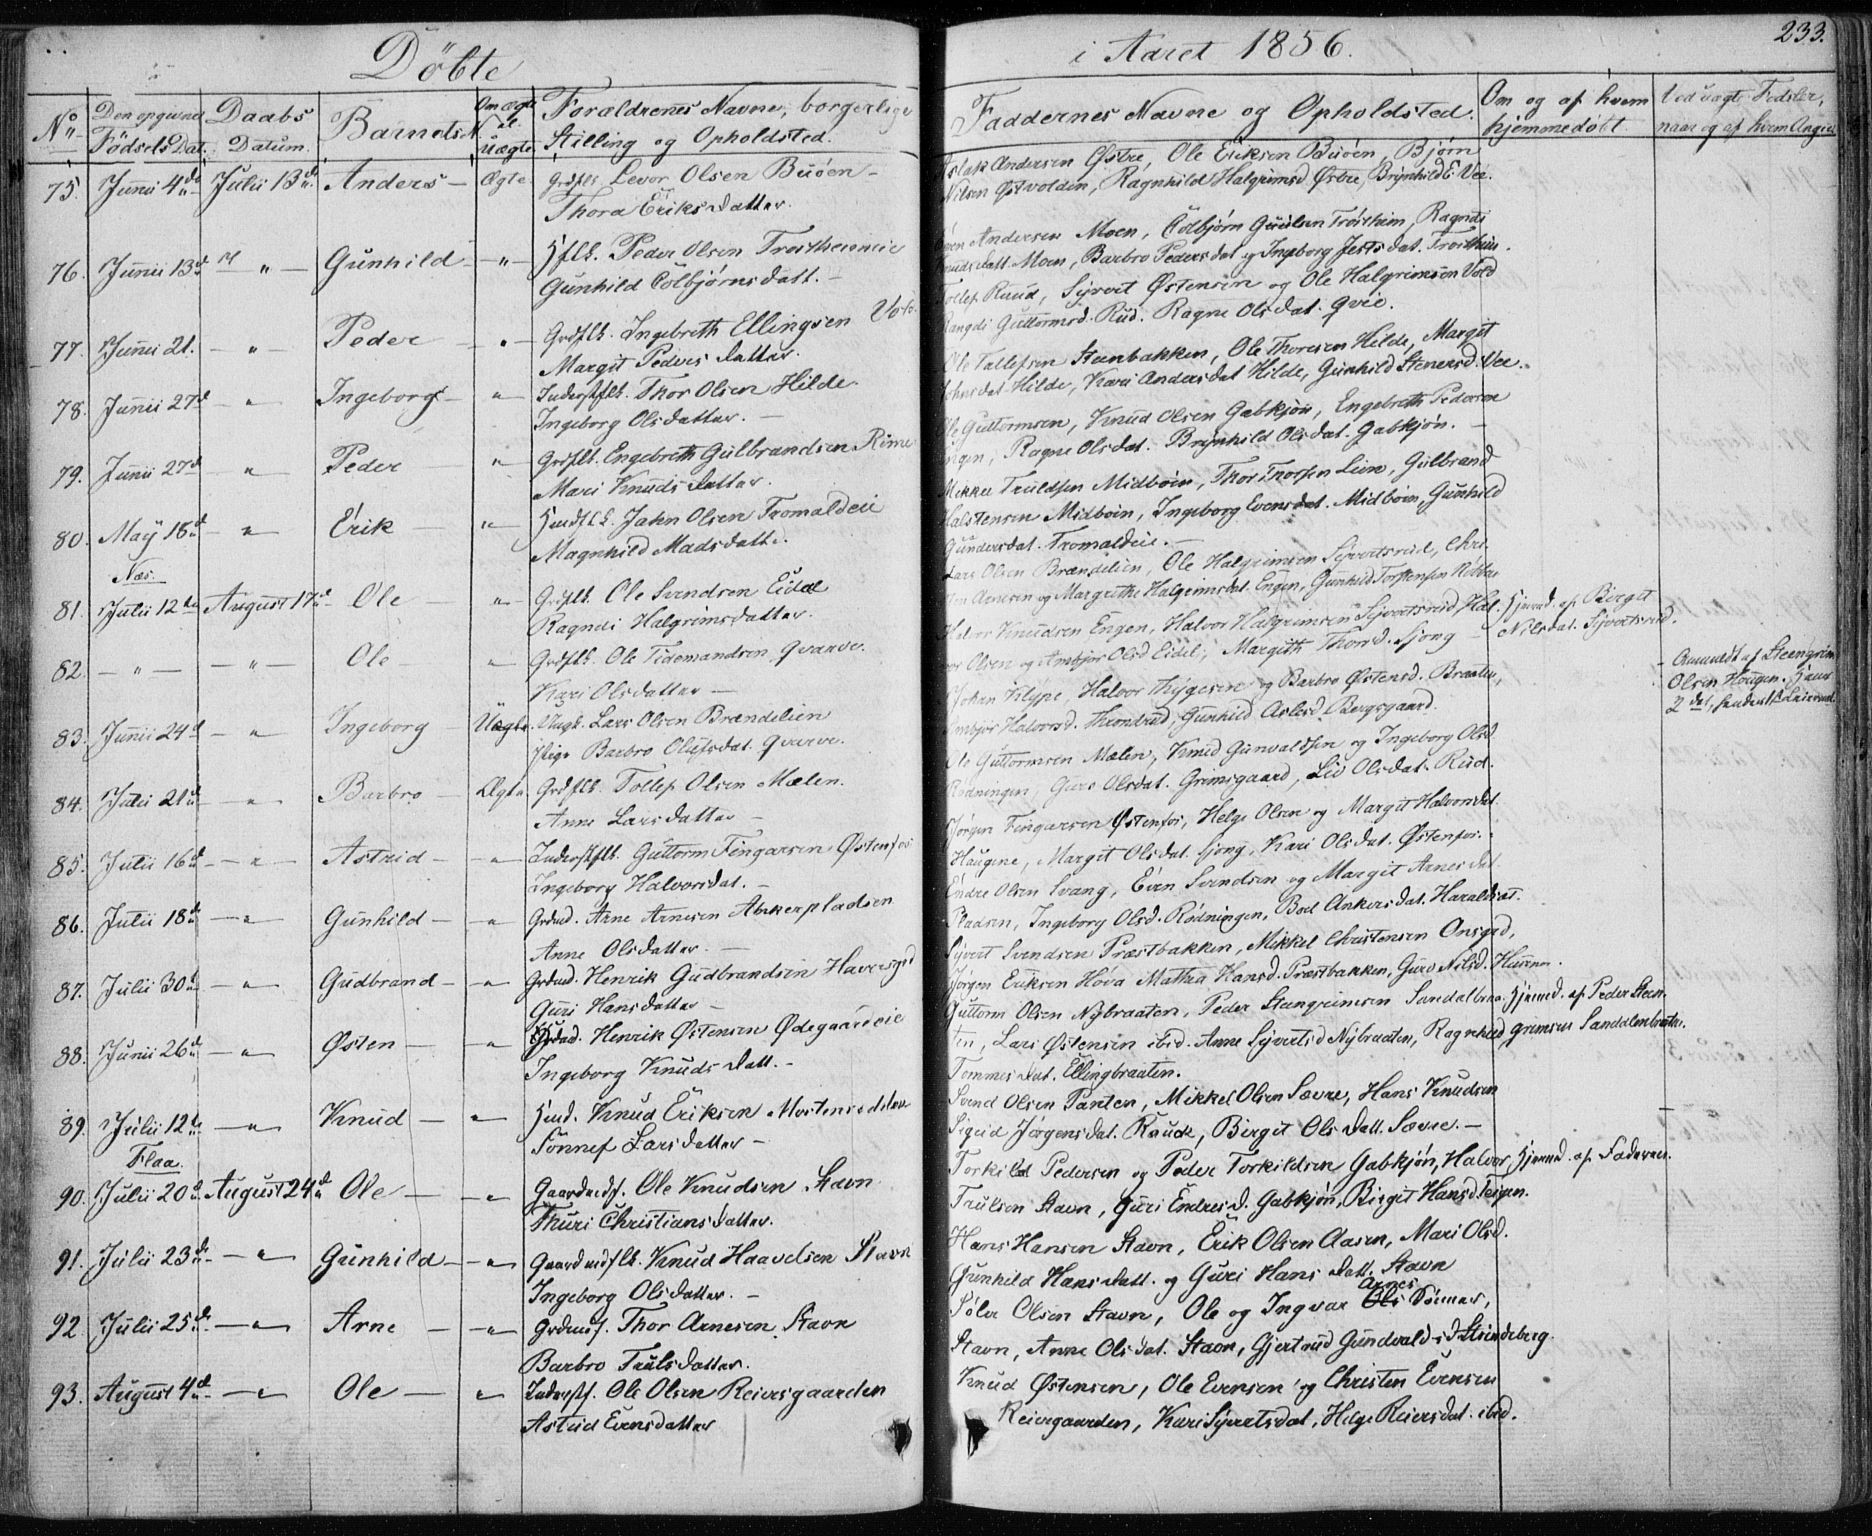 Döbte
i Aaret 1856.
233.
No
Den opgivne
Födsels Dat.
Daabs
Datum.
Barnets N
Om ægte
el.
uægte
Forældrenes Navne, borgerlige
Stilling og Opholdsted.
Faddernes Navne og Opholdsted.
Om og af hvem
hjemmedøbt.
Ved uægte Fødsler,
naar og af hvem Angivet
75. Junii 4de Julii 13de Anders - Ægte Grdflk. Levor Olsen Buöen -
Thora Eriksdatter.
Aslak Andersen Østre, Ole Eriksen Buöen, Bjørn
Nilsen Østvolden, Ragnhild Halgrimsd. Østre, Brynhild E. Vee.
76. Junii 13d " - Gunhild - " - Hflk. Peder Olsen Trostheimeie
Gunhild Colbjørnsdatt. -
Andersen Moen, Colbjørn Trostheim, Ragndi
Knudsdatt. Moen, Barbro Pedersdat. og Ingeborg Jestsdat. Trostheim.
77. Junii 21. - " - Peder - " - Grdflk. Ingebreth Ellingsen
Margit Pedersdatter.
Tollef Ruud, Syvert Østensen og Ole Halgrimsen Vold
Rangdi Guttormsd. Rud. Ragne Olsdat. Qvie.
78. Junii 27d " Ingeborg - " Inderstflk. Thor Olsen Hilde.
Ingeborg Olsdatter. -
Ole Tollefsen Steenbakken, Ole Thoresen Hilde, Margit
Johnsdat. Hilde, Kari Andersdat. Hilde, Gunhild Stenersd. Vee.
79. Junii 27d " Peder " Grdflk. Engebreth Gulbrandsen Rime
Mari Knudsdatter.
Ole Guttormsen, Knud Olsen Gabkjøn, Engebreth Pedersen
Engen, Ragne Olsdat. Brynhild Olsdat. Gabkjøn. -
80. Maÿ 18d - " Erik - " Husflk. John Olsen Tromaldeie
Magnhild Madsdatte.
Mekkel Truldsen Midböen, Thor Thorsen Lien, Gulbrand
Halstensen Midböen, Ingeborg Evensdat. Midböen, Gunhild
Gundersdat. Tromaldeie. -
Næs.
81. Julii 12te August 17de Ole - " Grdflk. Ole Svendsen Eidal
Ragndi Halgrimsdatter.
Lars Olsen Brændelien, Ole Halgrimsen Syvertsrud, Chri-
Arnesen og Margrethe Halgrimsdat. Engen, Gunhild Torstensen
82. - " - - " - Ole " Grdflk. Ole Tidemandsen Qvarve.
Kari Olsdatter -
Halvor Knudsen Engen, Halvor Halgrimsen Syvertsrud, Hal-
vor Olsen og Ambjør Olsd. Eidal, Margith Thorsd. Sjong -
Hjemd. af Birgit
Nilsdat. Syvertsrud.
83. Junii 24d - " Ingeborg - Uægte Ungk. Lars Olsen Brændelien
Pige Barbro Olufsdat. Qvarve.
Johan Klype, Halvor Thygesen og Barbro Østensd. Braaten,
Ambjør Halvorsd. Throndrud, Gunhild Aslesd. Bergsgaard.
Anmeldt af Steengrim
Olsen Hougen.
84. Julii 21d - " Barbro - Ægte. Grdflk. Tollef Olsen Mælen.
Anne Larsdatter -
Ole Guttormsen Mælen, Knud Gunvaldsen og Ingeborg Olsd.
Rödningen, Guro Olsdat. Grimsgaard, Liv Olsdat. Rud.
85. Julii 16d - " - Astrid - - " Inderstflk. Guttorm Fingarsen Østenfos
Ingeborg Halvorsdat. -
Jørgen Fingarsen Østenfos, Helge Olsen og Margit Halvorsdat.
Haugene, Margit Olsdat. Sjong, Kari Olsdat. Østenfos.
86. Julii 18d - " Gunhild - " Grdmd. Arne Arnesen Ankerpladsen
Anne Olsdatter. -
Endre Olsen Svang, Even Svendsen og Margit Arnesdat.
Plaasen, Ingeborg Olsd. Rödningen, Bod Ankersdat. Haraldset.
87. Julii 30d - " Gudbrand - " Grdmd. Henrik Gudbrandsen Haversgrd
Guri Hansdatter -
Syvert Svendsen Præstbakken, Mikkel Christensen Onsgrd,
Jørgen Eriksen Höva Mathia Hansd. Præstbakken, Guro Nilsd. Husene.
88. Junii 26d - " Østen - " Hsmd. Henrik Østensen Ødegaardeie
Ingeborg Knudsdatt. -
Guttorm Olsen Nybraaten, Peder Stengrimsen Sandalbraa-
ten, Lars Østensen ibid. Anne Syvertsd. Nybraaten, Ragnhild
Tommesdat. Ellingbraaten.
Hjemmd. af Peder Steen-
grimsen Sandalenbraaten.
89. Julii 12te - " Knud - " Hsmd. Knud Eriksen
Sönnef Larsdatter -
Svend Olsen Panten, Mikkel Olsen Sævre, Hans Knudsen
Sigrid Jørgensdat. Rauck, Birgit Olsdatt. Sævre. -
Flaa.
90. Julii 20d August 24d Ole - - " Gaardmdf. Ole Knudsen Stavn
Thuri Christiansdatter.
Torkild Pedersen og Peder Torkildsen Gabkjøn, Halvor
Trulsen Stavn, Guri Endresd. Gabkjøn, Birgit Hansd. Teigen.
Hjemmd. af Faderen.
91. Julii 23d - " Gunhild - " Gaardmdflk. Knud Haavelsen Stavn
Ingeborg Olsdatter. -
Hans Hansen Stavn, Erik Olsen Aasen, Mari Olsd.
Gunhild Hansdatt. og Guri Hansdatt. Stavn
92. Julii 25d - " Arne - - " Grdmdf. Thor Arnesen Stavn
Barbro Trulsdatter.
Söln Olsen Stavn, Ole og Ingvar Ols Arnes Sönner,
Stavn, Anne Olsdat. Stavn, Gjertrud Gundvaldsd. Strindeberg.
93. August 4d - " Ole - " Inderstf. Ole Olsen Reiersgaarden
Astrid Evensdatter
Knud Østensen, Ole Evensen og Christen Evensen
Reiergaarden, Kari Syvertsdat, Helge Reiersdat. ibid.